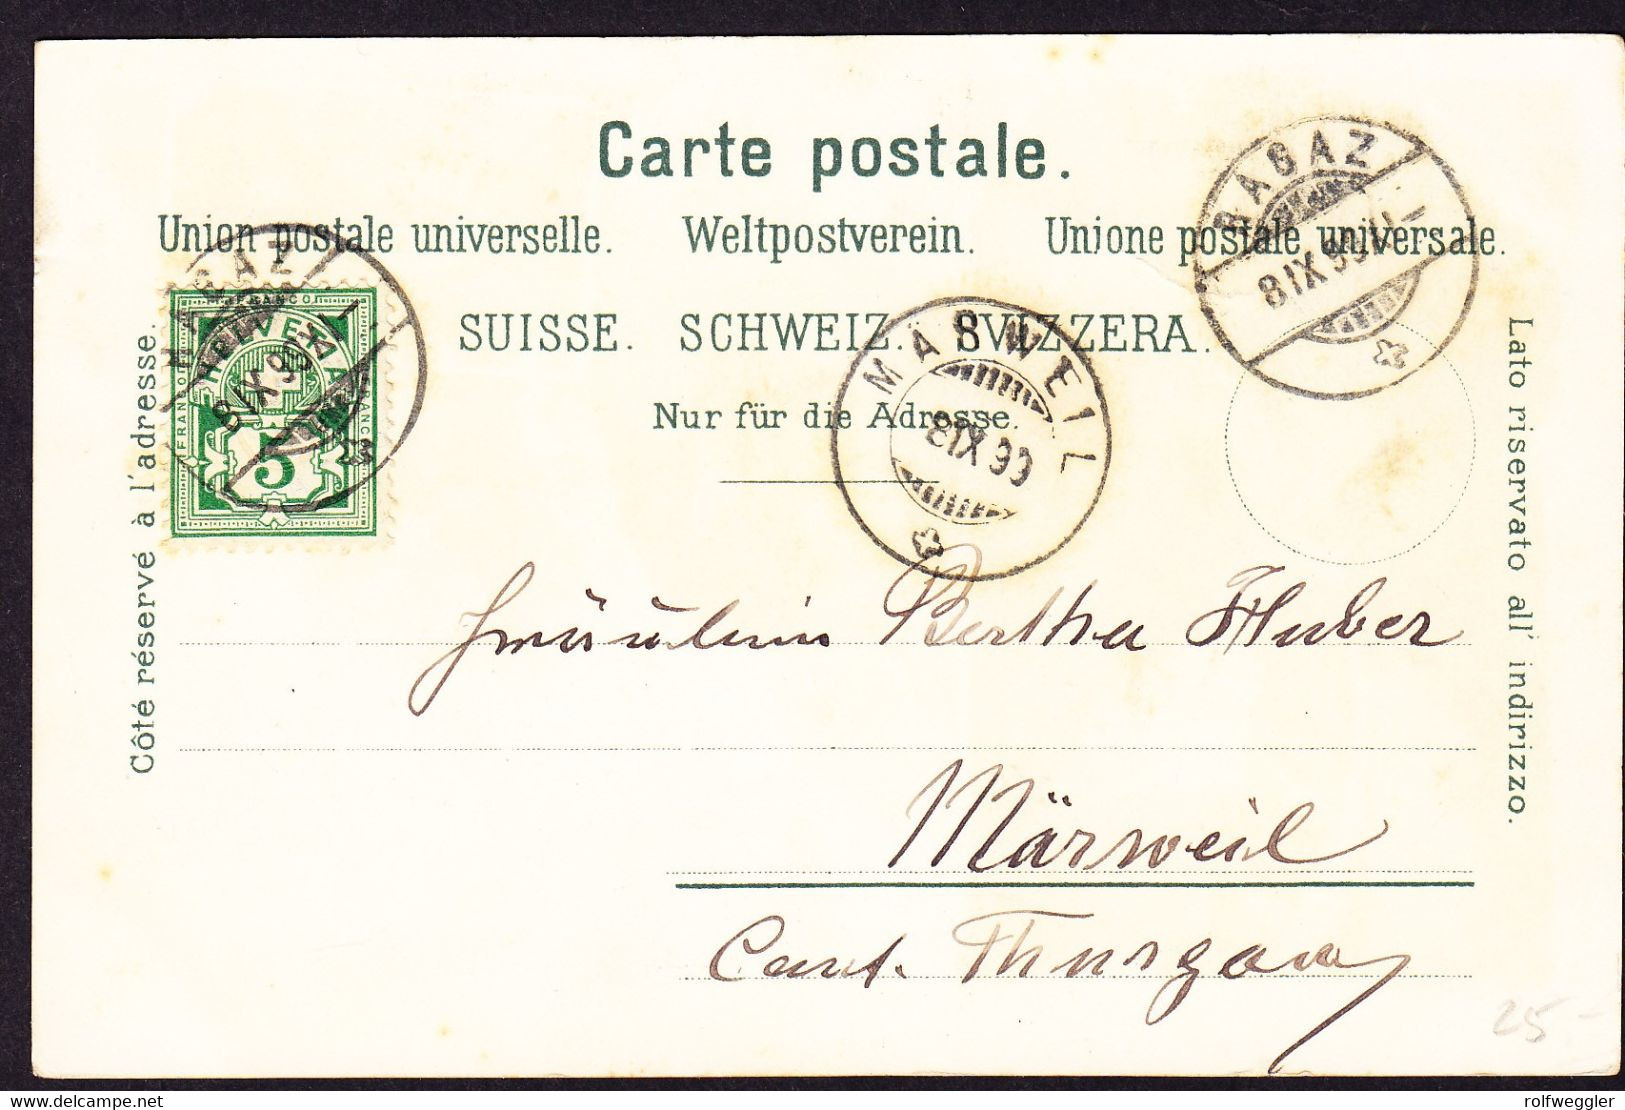 Carte postale.
Union postale universelle. Weltpostverein. Unione postale universale.
SUISSE. SCHWEIZ. SVIZZERA.
Nur für die Adresse.
Côté réservé à l'adresse.
Lato riservato all' indirizzo.
RAGAZ
8 IX 99
FRANCO
HELVETIA
FRANCO
FRANCO
5
MÄRWEIL
8 IX 99
RAGAZ
8 IX 99
Fräulein Bertha Huber
Märweil
Cant. Thurgau
25-
delcampe.net
rolfweggler